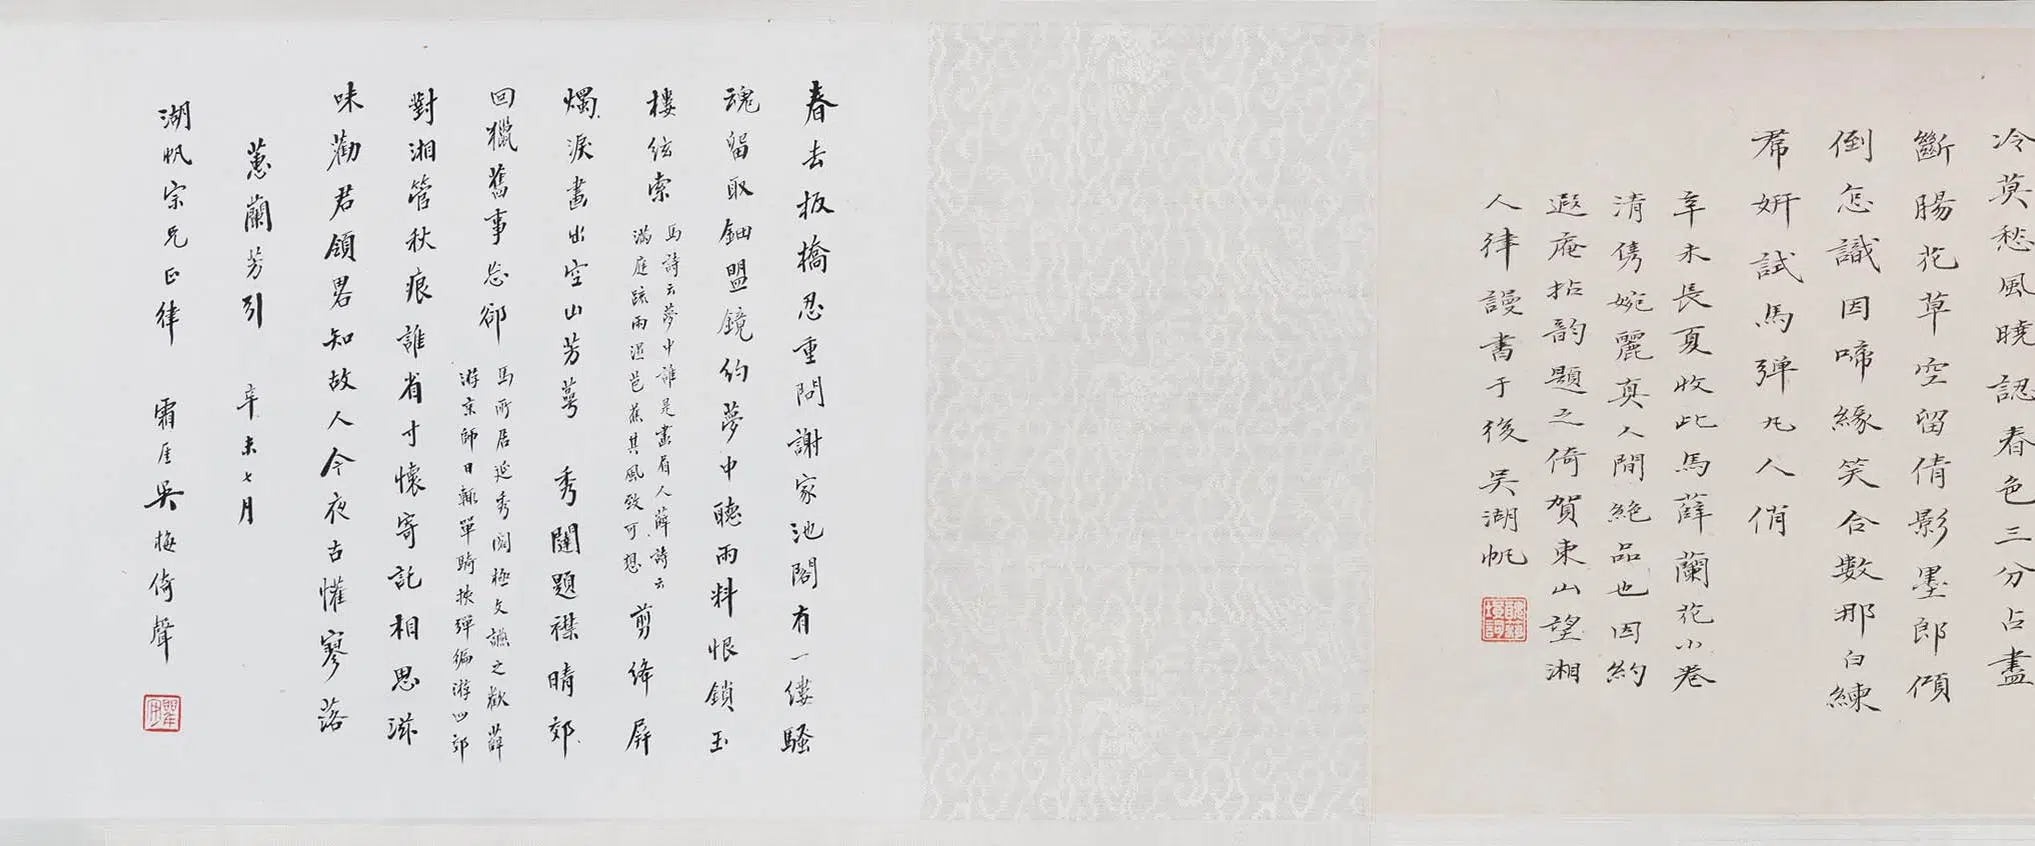 冷莫愁風曉認春色三分占盡
斷腸花草空留倩影墨郎傾
倒怎識因啼緣笑合數那白練
帬妍試馬彈丸人俏
辛未長夏收此馬薛蘭花小卷
清儁婉麗真人間絕品也因約
遐庵拈韵題之倚賀東山望湘
人律謾書于後吳湖帆
春去板橋忍重問謝家池閣有一縷騷
魂留取鈿盟鏡約夢中聽雨料恨鎖玉
樓絃索
馬詩云夢中誰是畫眉人薛詩云
滿庭疏雨溼芭蕉其風致可想
剪絳屏
燭淚畫出空山芳萼 秀閣題襟晴郊
回獵舊事忘卻
馬所居延秀閣極文讌之歡薛
游京師日輒單騎挾彈徧游四郊
對湘管秋痕誰省寸懷寄託相思滋
味勸君領畧知故人今夜古懽寥落
蕙蘭芳引 辛未七月
湖帆宗兄正律 霜厓吳梅倚聲